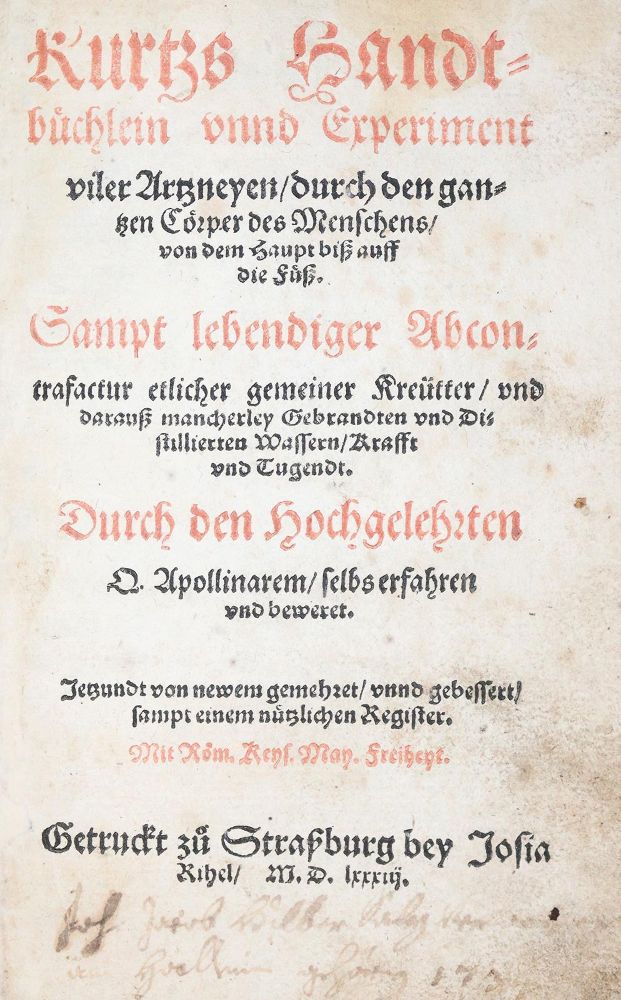 Kurtzs Handt⸗
büchlein vnnd Experiment
viler Artzneyen/durch den gan⸗
tzen Cörper des Menschens/
von dem Haupt biß auff
die Füß.
Sampt lebendiger Abcon⸗
trafactur etlicher gemeiner Kreütter/ vnd
darauß mancherley Gebrandten vnd Di⸗
stillierten Wassern/Krafft
vnd Tugendt.
Durch den Hochgelehrten
Q. Apollinarem/ selbs erfahren
vnd beweret.
Jetzundt von newem gemehret/ vnnd gebessert/
sampt einem nützlichen Register.
Mit Röm. Keys. May. Freiheyt.
Getruckt zů Straßburg bey Josia
Rihel/ M. D. lxxxiij.
Joh Jacob